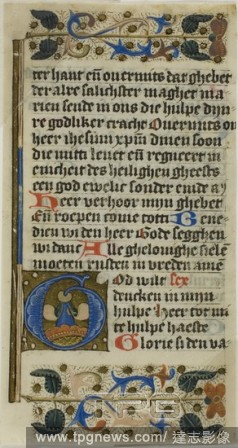 ter hant eñ ouermits dat ghebet
der alre salichster maghet ma
rien sende in ons die hulpe dijn
re godliker cracht Ouermits on
heer ihesum xpm dinen soon
die mitti leuet eñ regneert in
enicheit des heilighen gheests
een god ewelic sonder einde aȳ
Heer verhoor mijn ghebet
Eñ roepen come totti Bene
dien wi den heer Gode segghen
wi danc Alle gheloeuighe siele
moeten rusten in vreden amē
God wilt sex
dencken in mijn
hulpe Heer tot mi
te hulpe haeste
Glorie si den va
www.tpgnews.com/達志影像